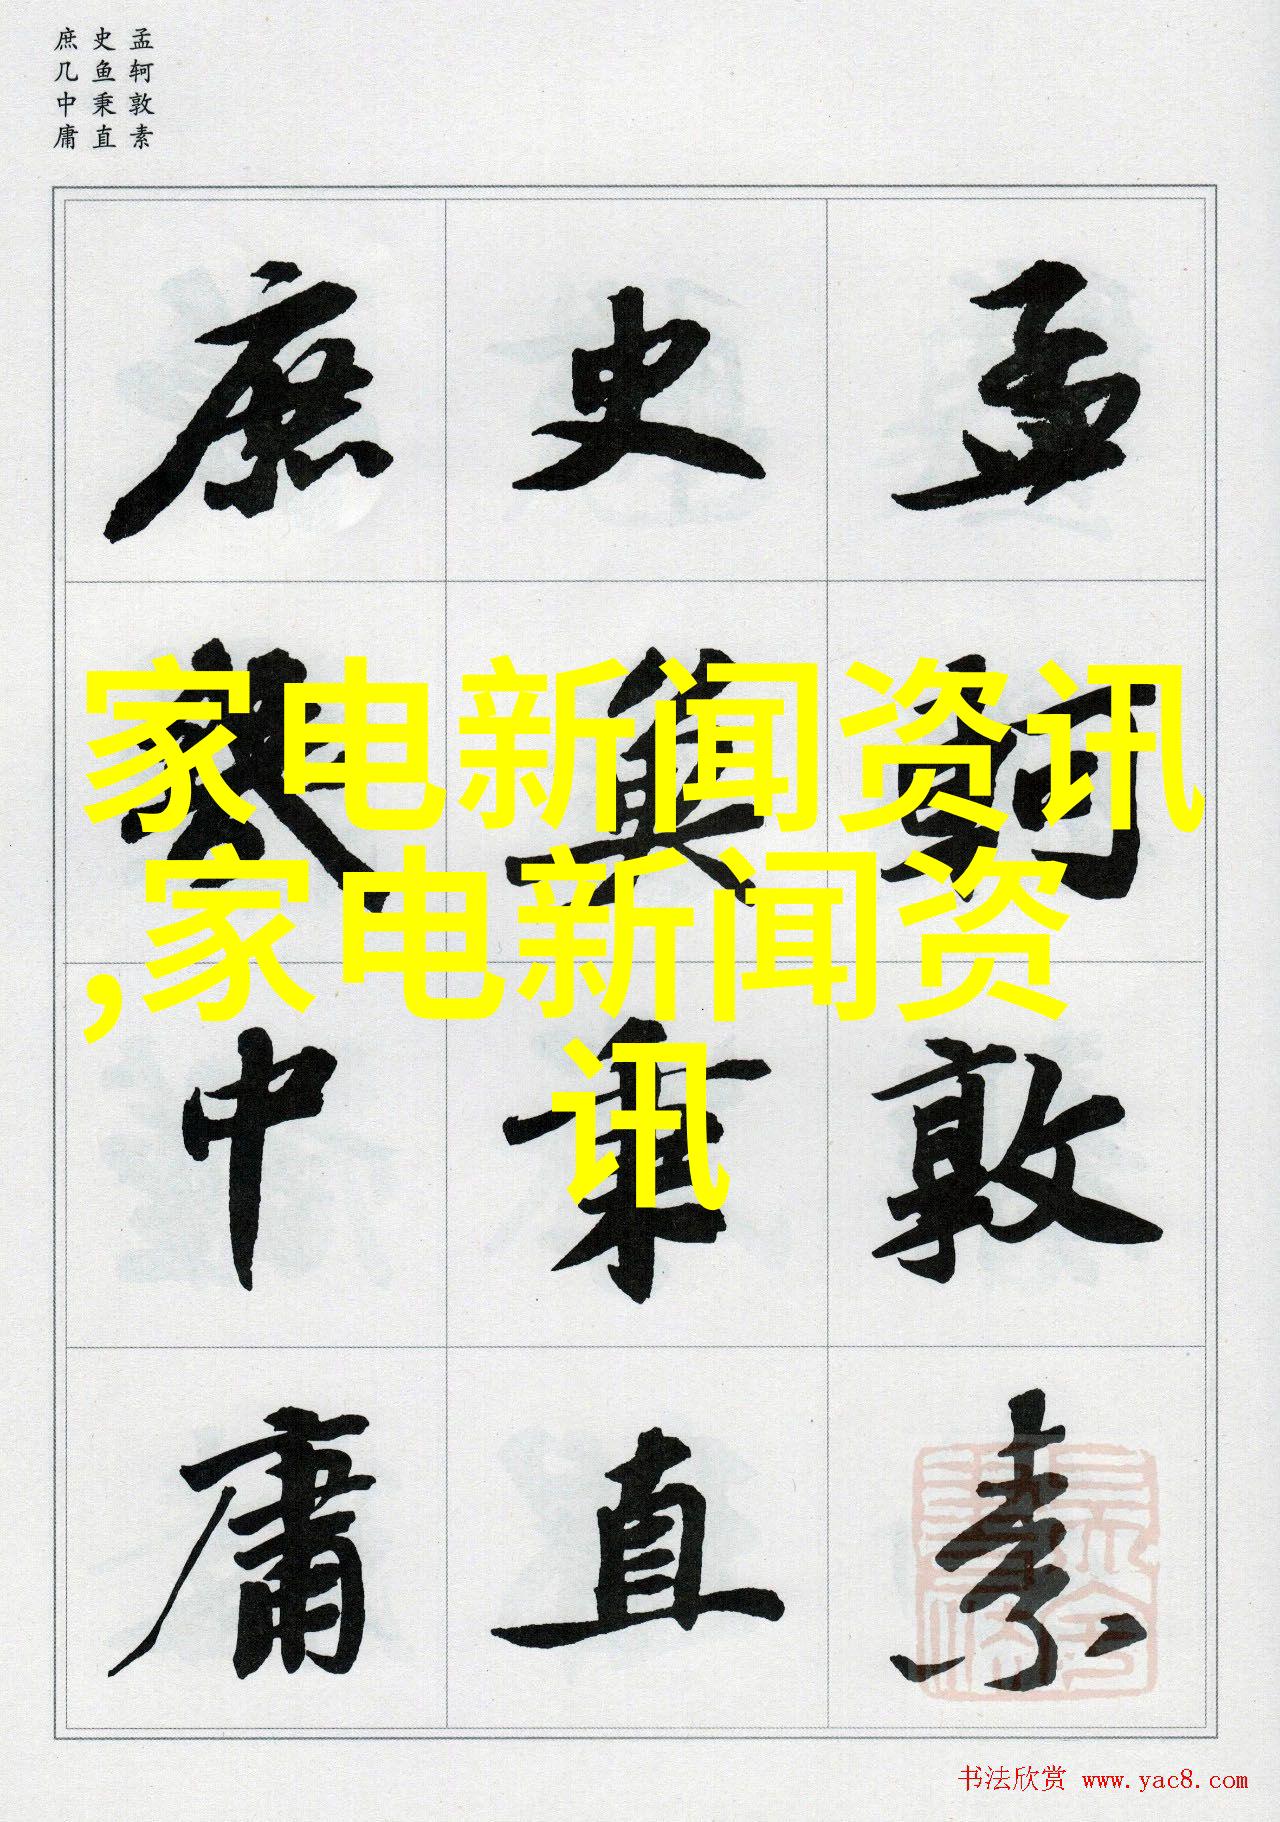 孟轲敦素
史鱼秉直
庶几中庸
孟轲敦素
史魚秉直
庶幾中庸
家电新闻资讯
,家电新闻资
讯
书法欣赏 www.yac8.com